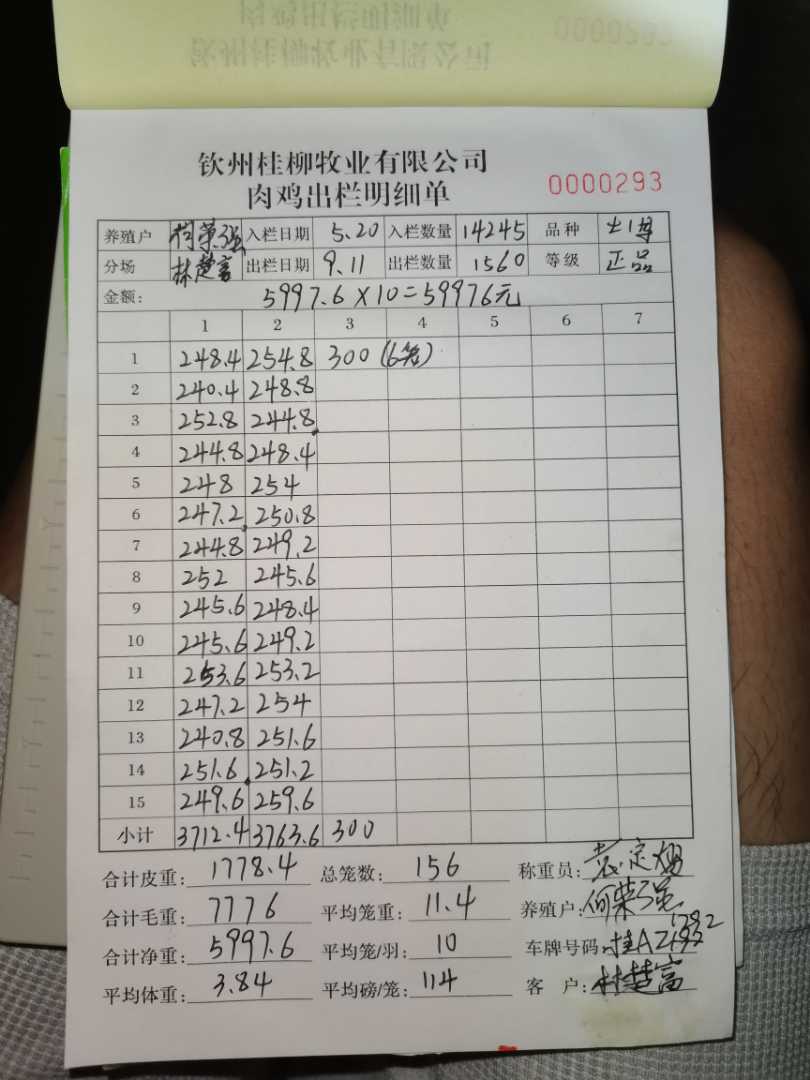 钦州桂柳牧业有限公司
肉鸡出栏明细单
0000293
养殖户 何荣强 入栏日期 5.20 入栏数量 14245 品种 土1母
分场 林楚富 出栏日期 9.11 出栏数量 1560 等级 正品
金额: 5997.6×10=59976元
1 2 3 4 5 6 7
1 248.4 254.8 300 (6笼)
2 240.4 248.8
3 252.8 244.8
4 244.8 248.4
5 248 254
6 247.2 250.8
7 244.8 249.2
8 252 245.6
9 245.6 248.4
10 245.6 249.2
11 253.6 253.2
12 247.2 254
13 240.8 251.6
14 251.6 251.2
15 249.6 259.6
小计 3712.4 3763.6 300
合计皮重: 1778.4 总笼数: 156 称重员:
合计毛重: 7776 平均笼重: 11.4 养殖户: 何荣强
合计净重: 5997.6 平均笼/羽: 10 车牌号码: 桂AZ
平均体重: 3.84 平均磅/笼: 114 客 户: 林楚富